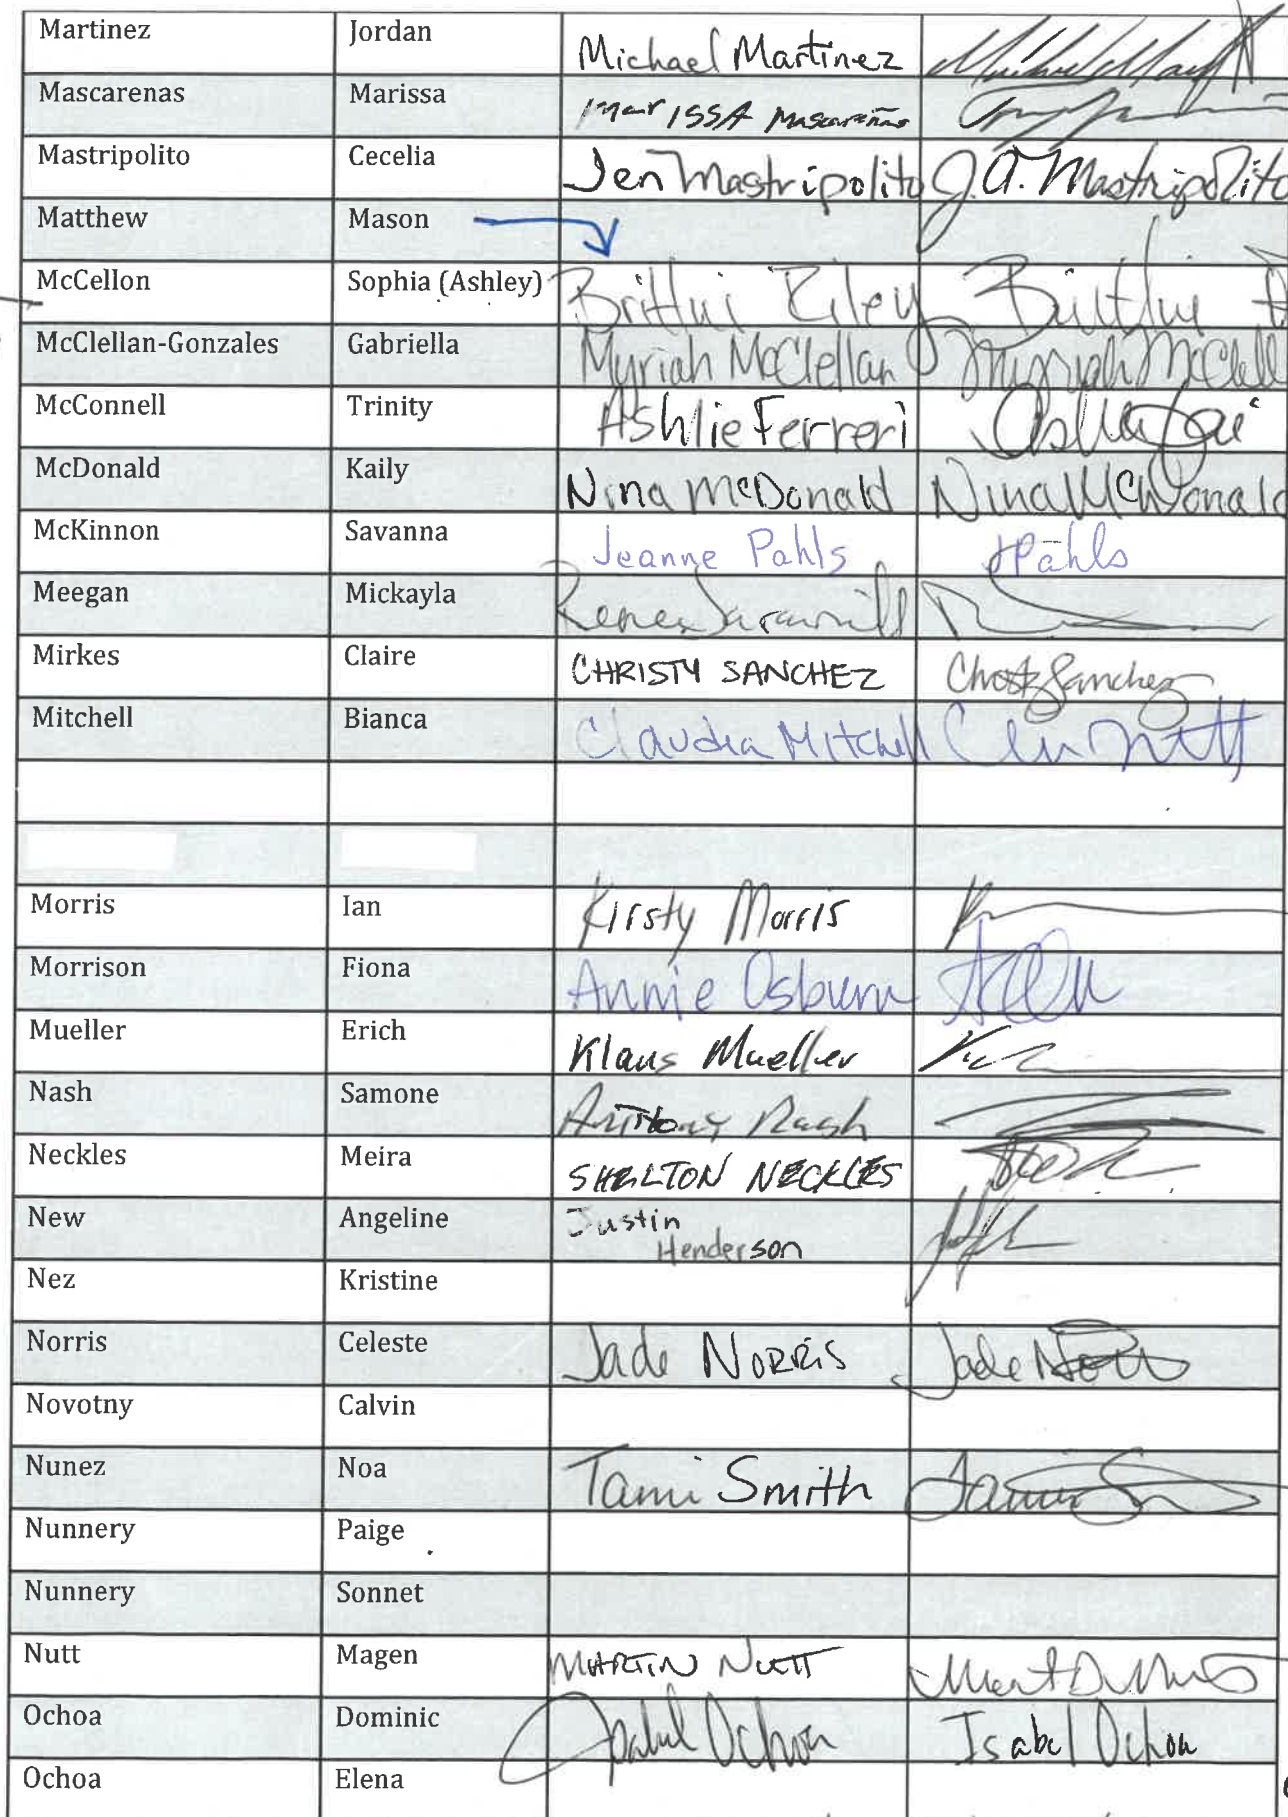 Martinez Jordan Michael Martinez
Mascarenas Marissa Marissa Mascareñas
Mastripolito Cecelia Jen Mastripolito J.A. Mastripolito
Matthew Mason
McCellon Sophia (Ashley) Brittni Riley Brittni
McClellan-Gonzales Gabriella Myriah McClellan Myriah McClell
McConnell Trinity Ashlie Ferreri
McDonald Kaily Nina McDonald Nina McDonald
McKinnon Savanna Jeanne Pahls JPahls
Meegan Mickayla Renee Jaramillo
Mirkes Claire CHRISTY SANCHEZ Christy Sanchez
Mitchell Bianca Claudia Mitchell
Morris Ian Kirsty Morris
Morrison Fiona Annie Osburn
Mueller Erich Klaus Mueller
Nash Samone Anthony Nash
Neckles Meira SHELTON NECKLES
New Angeline Justin
Henderson
Nez Kristine
Norris Celeste Jade Norris Jade
Novotny Calvin
Nunez Noa Tami Smith Tami
Nunnery Paige
Nunnery Sonnet
Nutt Magen MARTIN NUTT
Ochoa Dominic Isabel Ochoa Isabel Ochoa
Ochoa Elena